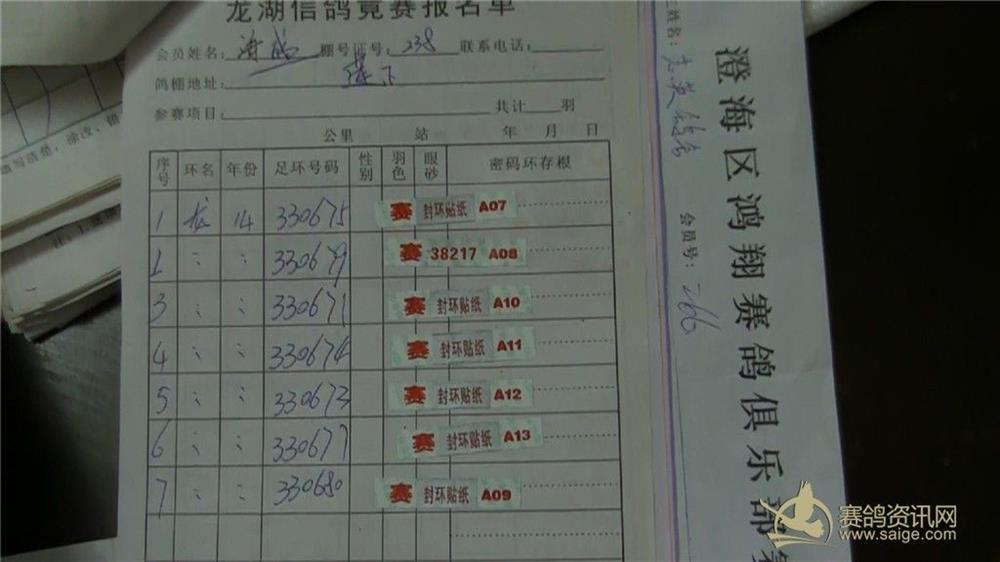 龙湖信鸽竞赛报名单
会员姓名: 棚号证号: 238 联系电话:
鸽棚地址: 莲下
参赛项目: 共计 羽
公里 站 年 月 日
序号 环名 年份 足环号码 性别 羽色 眼砂 密码环存根
1 14 330675 赛 封环贴纸 A07
2 〃 〃 330679 赛 38217 A08
3 〃 〃 330671 赛 封环贴纸 A10
4 〃 〃 330674 赛 封环贴纸 A11
5 〃 〃 330673 赛 封环贴纸 A12
6 〃 〃 330677 赛 封环贴纸 A13
7 〃 〃 330680 赛 封环贴纸 A09
填写清楚, 涂改、错
姓名: 志英鸽舍 会员号: 266
澄海区鸿翔赛鸽俱乐部赛
赛鸽资讯网
www.saige.com